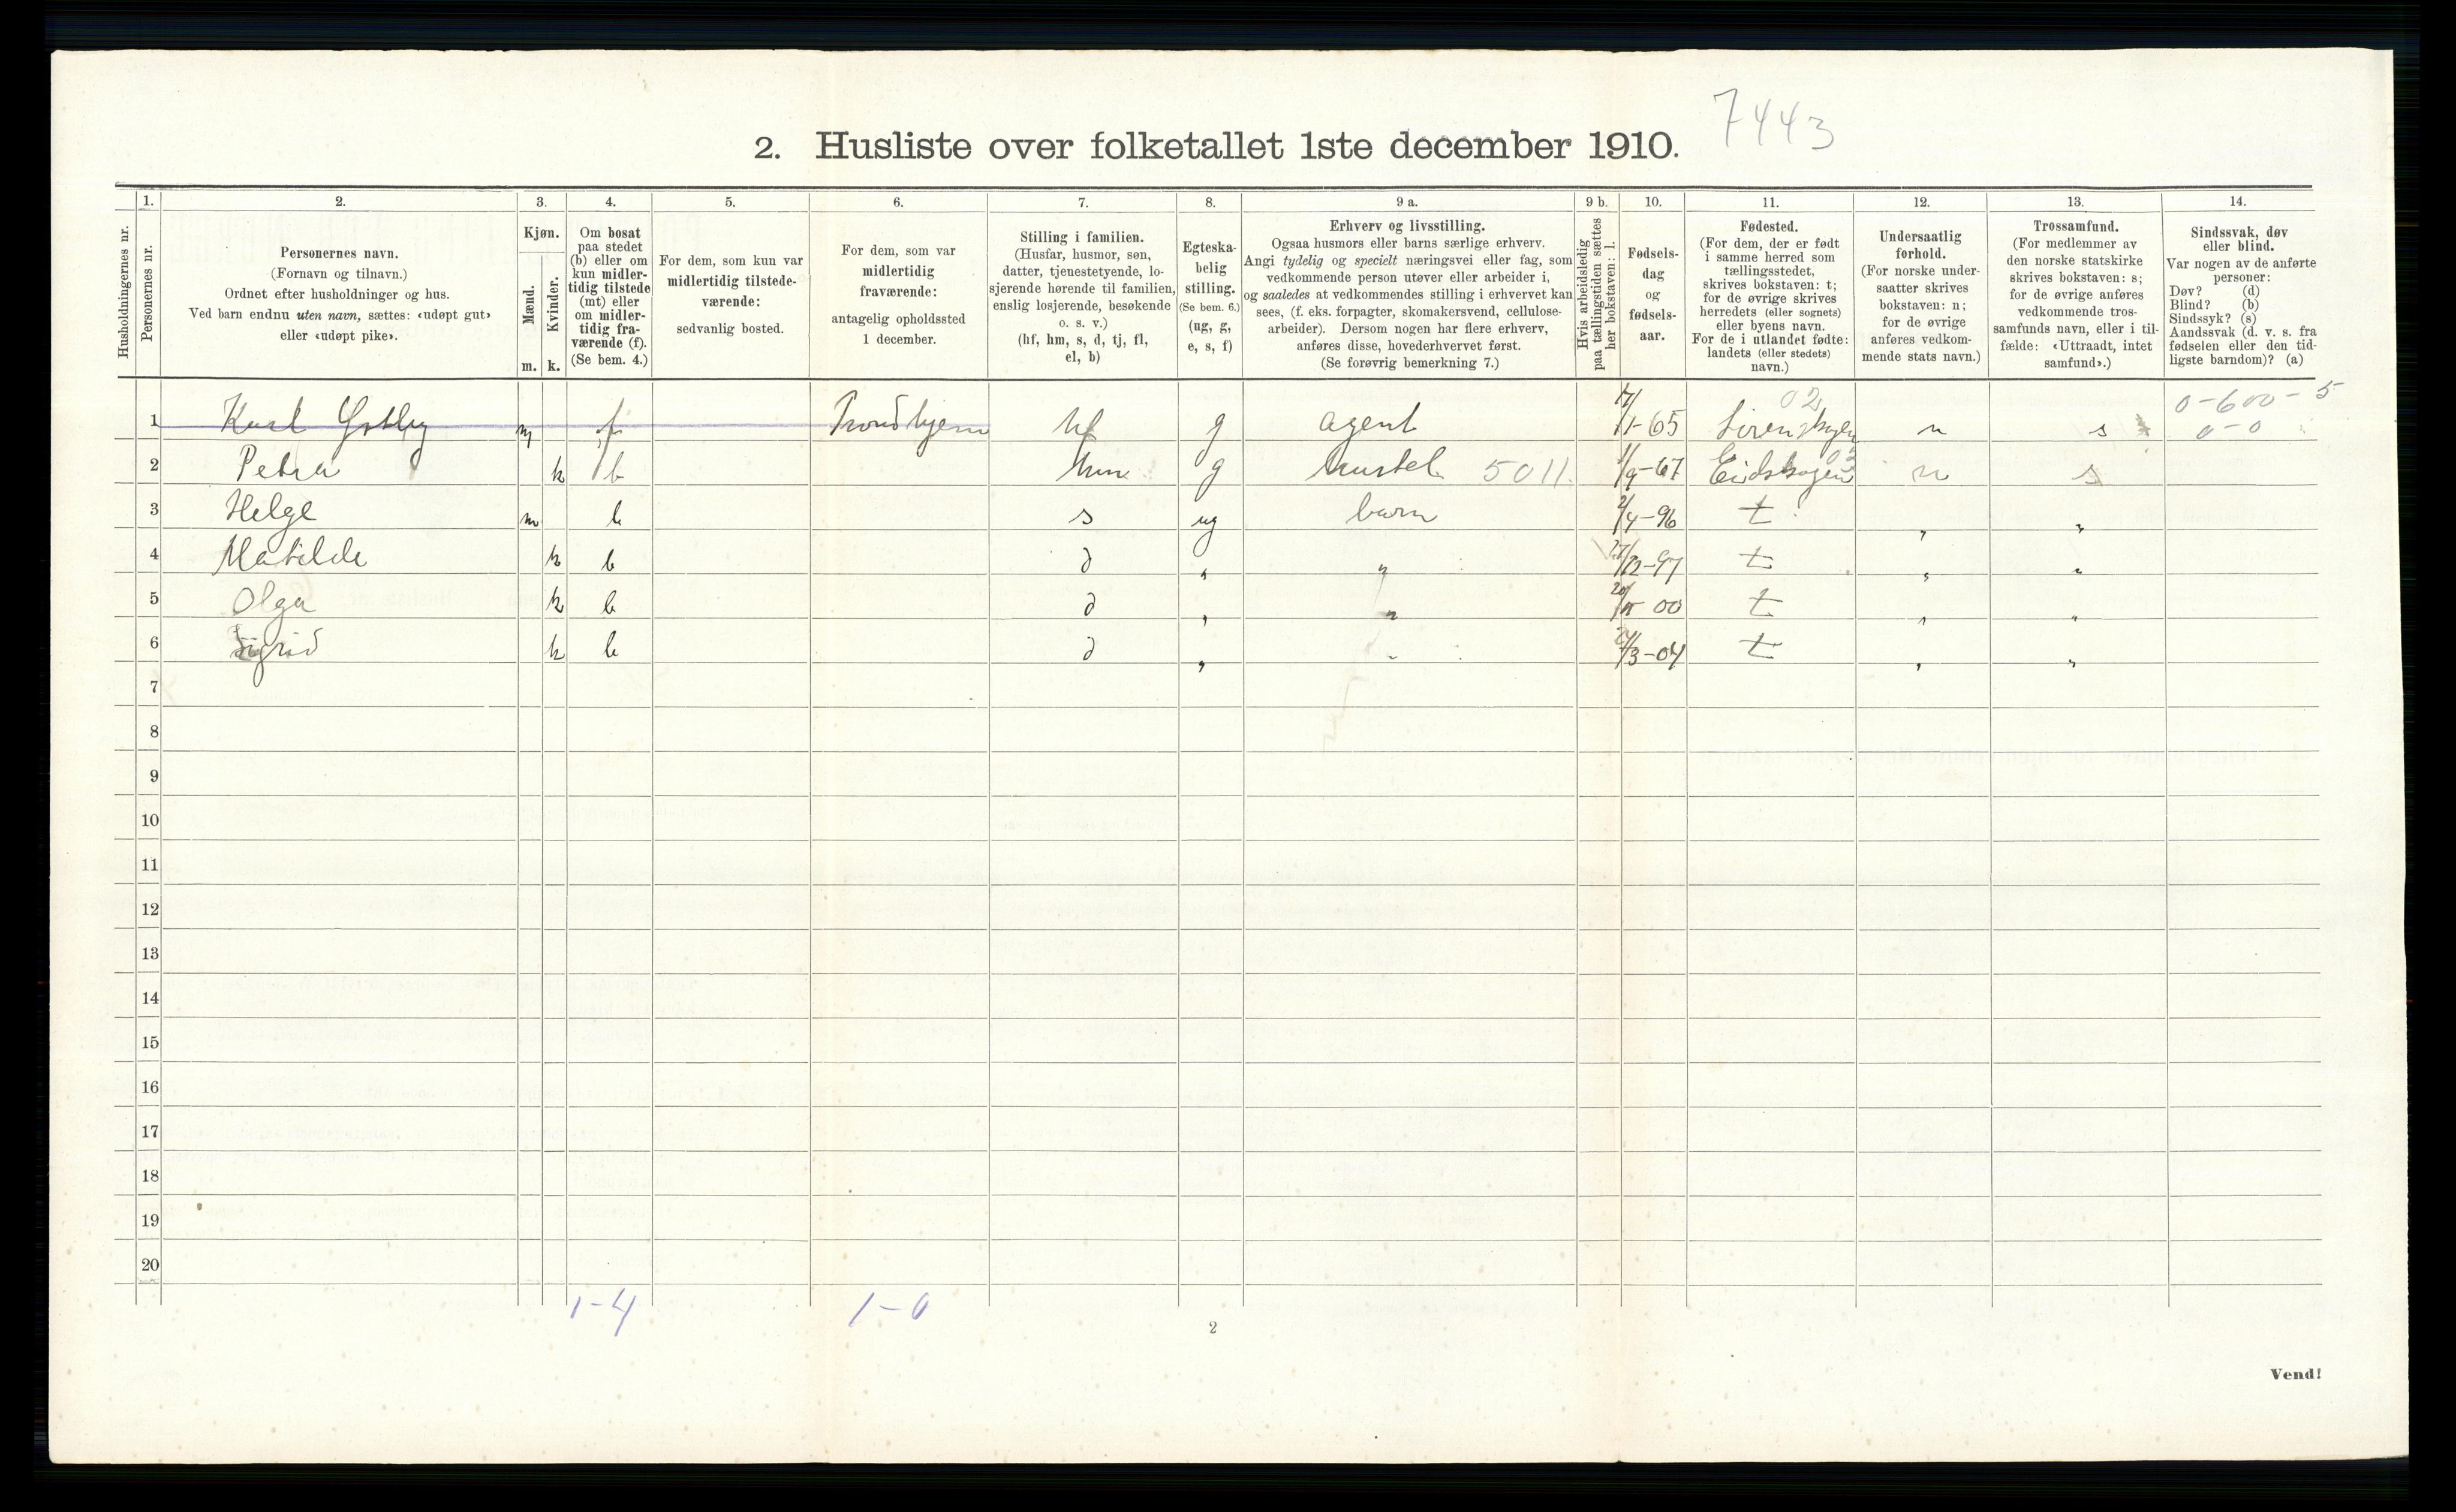 7443
2. Husliste over folketallet 1ste december 1910.
1. 2. 3. 4. 5. 6. 7. 8. 9 a. 9 b. 10. 11. 12. 13. 14.
Husholdningernes nr.
Personernes nr.
Personernes navn.
(Fornavn og tilnavn.)
Ordnet efter husholdninger og hus.
Ved barn endnu uten navn, sættes: «udøpt gut»
eller «udøpt pike».
Kjøn.
Mænd.
Kvinder.
m. k.
Om bosat
paa stedet
(b) eller om
kun midler-
tidig tilstede
(mt) eller
om midler-
tidig fra-
værende (f).
(Se bem. 4.)
For dem, som kun var
midlertidig tilstede-
værende:
sedvanlig bosted.
For dem, som var
midlertidig
fraværende:
antagelig opholdssted
1 december.
Stilling i familien.
(Husfar, husmor, søn,
datter, tjenestetyende, lo-
sjerende hørende til familien,
enslig losjerende, besøkende
o. s. v.)
(hf, hm, s, d, tj, fl,
el, b)
Egteska-
belig
stilling.
(Se bem. 6.)
(ug, g,
e, s, f)
Erhverv og livsstilling.
Ogsaa husmors eller barns særlige erhverv.
Angi tydelig og specielt næringsvei eller fag, som
vedkommende person utøver eller arbeider i,
og saaledes at vedkommendes stilling i erhvervet kan
sees, (f. eks. forpagter, skomakersvend, cellulose-
arbeider). Dersom nogen har flere erhverv,
anføres disse, hovederhvervet først.
(Se forøvrig bemerkning 7.)
Hvis arbeidsledig
paa tællingstiden sættes
her bokstaven: l.
Fødsels-
dag
og
fødsels-
aar.
Fødested.
(For dem, der er født
i samme herred som
tællingsstedet,
skrives bokstaven: t;
for de øvrige skrives
herredets (eller sognets)
eller byens navn.
For de i utlandet fødte:
landets (eller stedets)
navn.)
Undersaatlig
forhold.
(For norske under-
saatter skrives
bokstaven: n;
for de øvrige
anføres vedkom-
mende stats navn.)
Trossamfund.
(For medlemmer av
den norske statskirke
skrives bokstaven: s;
for de øvrige anføres
vedkommende tros-
samfunds navn, eller i til-
fælde: «Uttraadt, intet
samfund».)
Sindssvak, døv
eller blind.
Var nogen av de anførte
personer:
Døv? (d)
Blind? (b)
Sindssyk? (s)
Aandssvak (d. v. s. fra
fødselen eller den tid-
ligste barndom)? (a)
02 0-600-5
1 m f Trondhjem hf g agent 1-65 n s 0-0
2 Petra k b hm g hustel 5011 /9-67 Eidskogen 03 n s
3 Helge m b s ug barn 2/4-96 t „ „
4 Matilde k b d „ „ 27/12-97 t „ „
5 Olga k b d „ „ 00 t „ „
6 Sigrid k b d „ „ /3-04 t „ „
7
8
9
10
11
12
13
14
15
16
17
18
19
20
1-4 1-0
2
Vend!